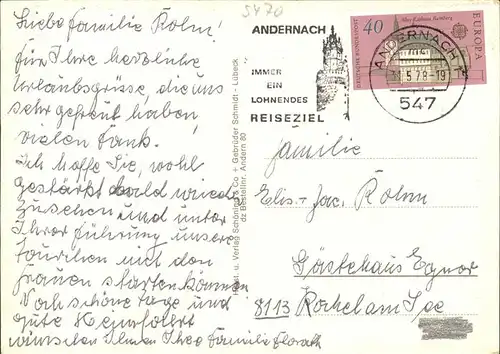 5470
Liebe Familie Rolm!
für Ihre herzliche
Urlaubsgrüsse, die uns
sehr gefreut haben
vielen Dank.
Ich hoffe Sie, wohl
gestärkt bald wieder
zu sehen und unter
Ihrer Führung unsere
Tourchen mit den
Frauen starten können
Noch schöne Tage und
gute Heimfahrt
wünschen Ihnen Ihre Familie
ANDERNACH
IMMER
EIN
LOHNENDES
REISEZIEL
DEUTSCHE BUNDESPOST
40
Altes Rathaus Bamberg
EUROPA
ANDERNACH 1
5.78-19
547
u. Verlag Schöning & Co + Gebrüder Schmidt - Lübeck
Bestellnr. Andern 80
Familie
Elis.- Jac. Rolm
Gästehaus
8113 Kochel am See